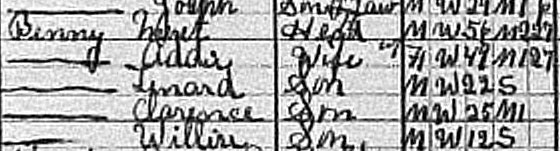 Joseph Son-in-law M W 29 M1
Benny Head M W 56 M2 27
Addie Wife F W 49 M1 27
Lenard Son M W 22 S
Clarence Son M W 25 M1
Willie Son M W 12 S